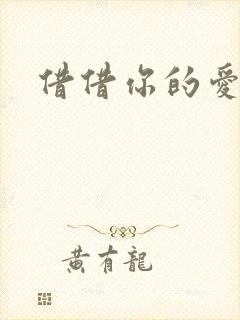 借借你的愛
黃有龍